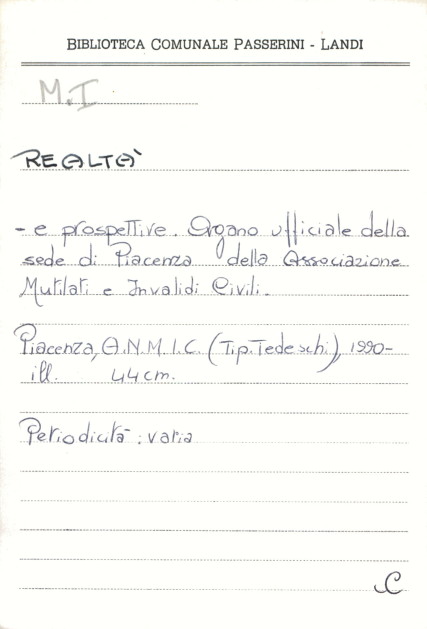 BIBLIOTECA COMUNALE PASSERINI - LANDI
M.I
REALTÀ
- e prospettive. Organo ufficiale della
sede di Piacenza della Associazione
Mutilati e Invalidi Civili.
Piacenza, A.N.M.I.C. (Tip. Tedeschi), 1990-
ill. 44 cm.
Periodicità : varia
C